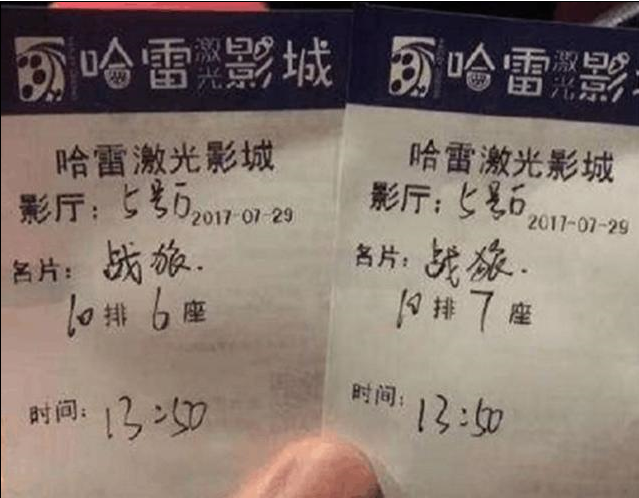 哈雷激光影城
哈雷激光影城
影厅：5号厅2017-07-29
名片：战旅.
10排6座
时间：13:50
哈雷激光影
哈雷激光影城
影厅：5号厅2017-07-29
名片：战旅.
10排7座
时间：13:50